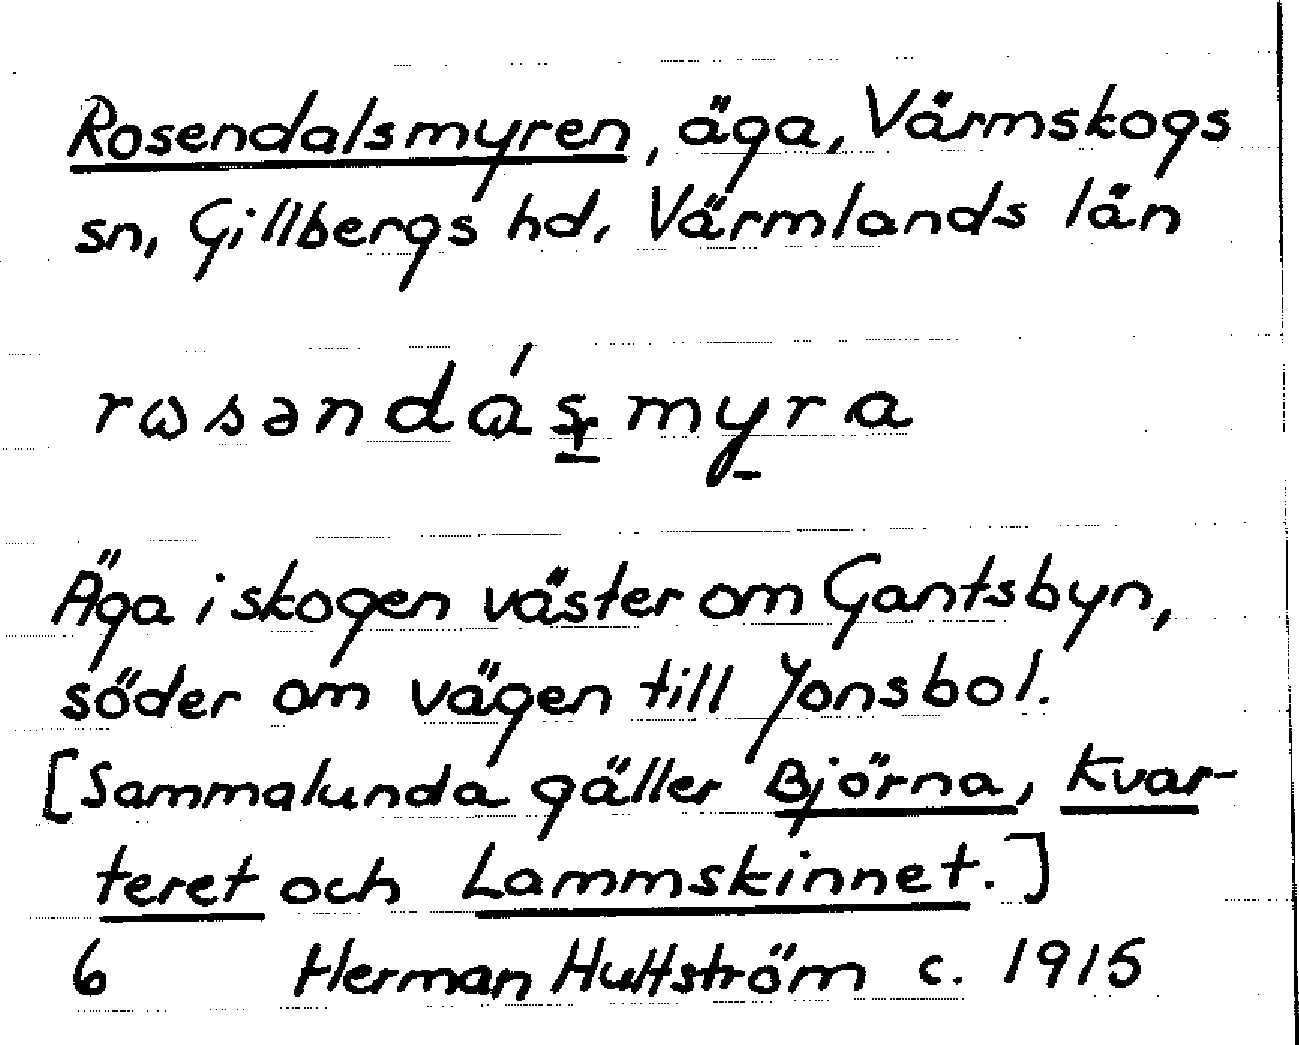 Rosendalsmyren, äga, Värmskogs
sn, Gillbergs hd, Värmlands län
Äga i skogen väster om Gantsbyn,
söder om vägen till Jonsbol.
[Sammalunda gäller Björna, Kvar-
teret och Lammskinnet.]
6 Herman Hultström c. 1915